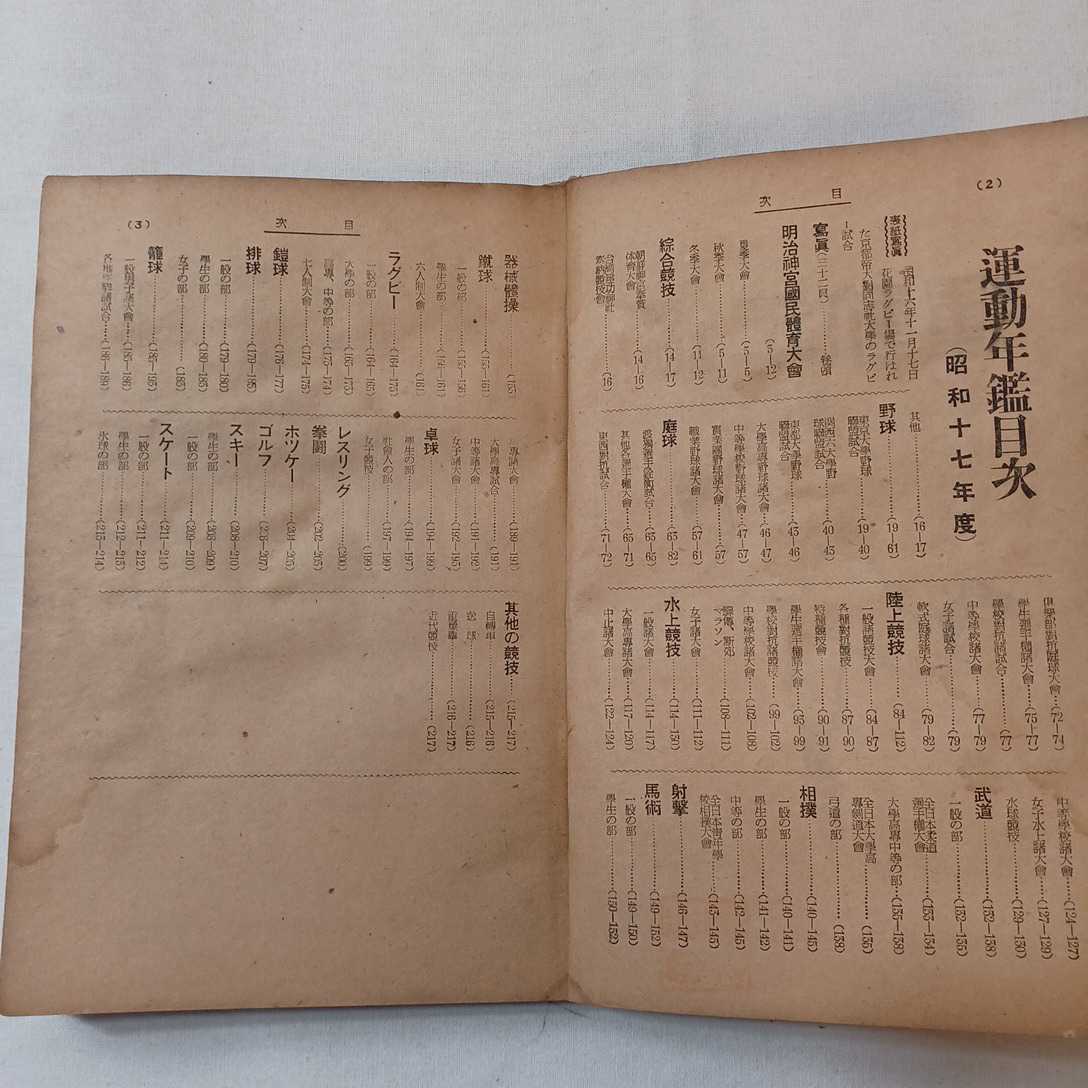 (2)
目次
運動年鑑目次
(昭和十七年度)
表紙寫眞
昭和十六年十一月十七日
花園ラグビー場で行はれ
た京都帝大對同志社大學のラグビ
ー試合
寫眞(三十二頁)……卷頭
明治神宮國民體育大會
(5—12)
夏季大會……(5—5)
秋季大會……(5—11)
冬季大會……(11—12)
綜合競技……(14—17)
朝鮮神宮奉贊
体育大會……(14—16)
台灣建功神社
奉納體育會……(16)
其他……(16—17)
野球……(19—61)
東京大學野球
聯盟試合……(19—40)
關西六大學野
球聯盟試合……(40—43)
東都大學野球
聯盟試合……(45—46)
大學高專野球諸大會……(46—47)
中等學校野球諸大會……(47—57)
實業團野球諸大會……57
職業野球諸大會……(57—61)
庭球……(63—82)
其他各選手權大會……(65—71)
東西對抗試合……(71—72)
俱樂部對抗庭球大會……(72—74)
學生選手權諸大會……(75—77)
學校對抗諸試合……(77)
中等學校諸大會……(77—79)
女子諸試合……(79)
軟式庭球諸大會……(79—82)
陸上競技……(84—112)
一般諸競技大會……(84—87)
各種對抗競技……(87—90)
特種競技會……(90—91)
學生選手權諸大會……(93—99)
學校對抗諸競技……(99—102)
中等學校諸大會……(103—108)
驛傳、斷郊
マラソン……(108—111)
女子諸大會……(111—112)
水上競技……(114—130)
一般諸大會……(114—117)
大學高專諸大會……(117—120)
中止諸大會……(122—124)
中等學校諸大會……(124—127)
女子水上諸大會……(127—129)
水球競技……(129—130)
武道……(132—138)
一般の部……(132—135)
全日本柔道
選手權大會……(133—134)
大學高專中等の部……(135—138)
全日本大學高
專劍道大會……(135)
弓道の部……(138)
相撲……(140—145)
一般の部……(140—141)
學生の部……(141—142)
中等の部……(142—145)
全日本青年學
校相撲大會……(145—145)
射擊……(146—147)
馬術……(149—152)
一般の部……(149—150)
學生の部……(150—152)
(3)
目次
器械體操……(153)
蹴球……(155—161)
一般の部
學生の部
六人制大會……(161)
ラグビー……(164—175)
一般の部……(164—165)
大學の部……(165—173)
高專、中等の部……(173—174)
七人制大會……(174—175)
鎧球……(176—177)
排球……(179—185)
一般の部……(179—180)
學生の部……(180—183)
女子の部……(183)
籠球……(185—195)
一般男子諸大會……(185—186)
各地學聯諸試合……(186—189)
高專諸大會……(189—191)
大學高專試合……(191)
中等諸大會……(191—192)
女子諸大會……(192—195)
卓球……(194—199)
學生の部……(194—197)
社會人の部……(197—199)
女子競技……(199)
レスリング……(200)
拳鬪……(202—203)
ホツケー……(204—205)
ゴルフ……(206—207)
スキー……(208—210)
學生の部……(208—209)
一般の部……(209—210)
スケート……(211—214)
一般の部……(211—212)
學生の部……(212—213)
氷球の部……(213—214)
其他の競技……(215—217)
自轉車……(215—216)
送球……(216)
重擧……(216—217)
近代競技……(217)